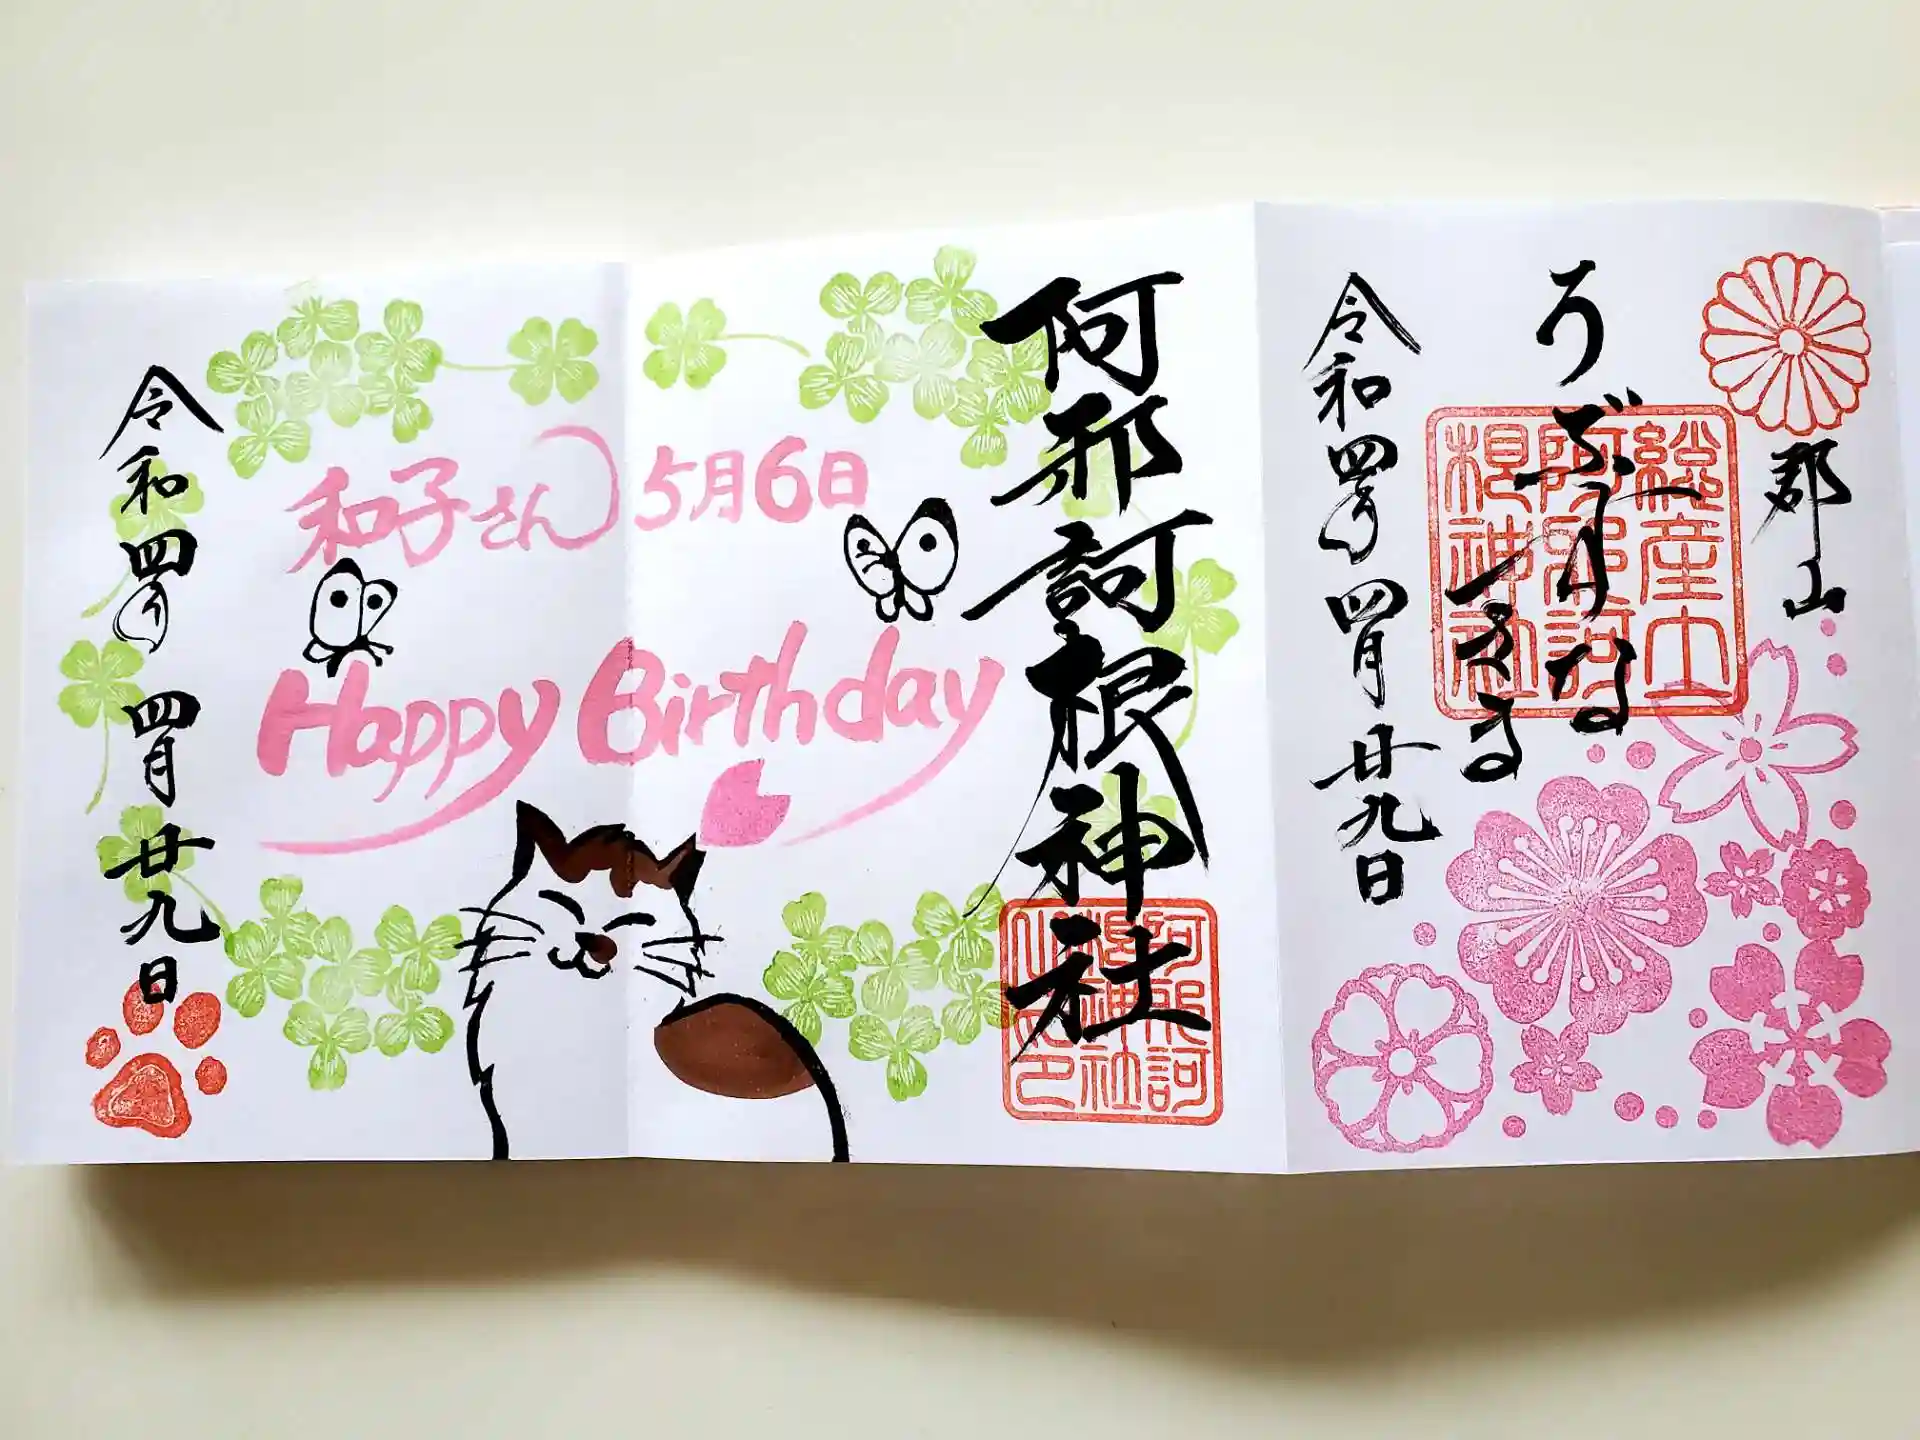 郡山
うぶすな
まつる
総産土
阿邪訶
根神社
令和四年四月廿九日
阿邪訶根神社
阿邪訶
根神社
之印
和子さん 5月6日
Happy Birthday
令和四年四月廿九日